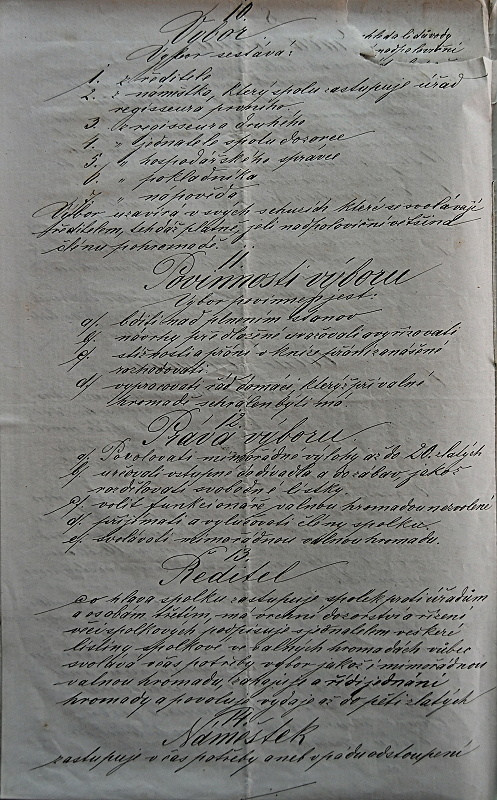 10.
Výbor
Výbor sestává:
1. z ředitele
2. z náměstka, který spolu zastupuje úřad
regisseura prvního
3. z regisseura druhého
4. " jednatele spolu dozorce
5. " hospodářského správce
6. " pokladníka
7. " nápověda
Výbor uzavírá v svých schůzích které se svolávají
ředitelem, tehdáž platně, jeli nadpoloviční většina
členů pohromadě.
11.
Povinnosti výboru
Výbor povinnen jest:
a). bdíti nad plněním stanov
b). návrhy předložené uvažovati a vyřizovati
c). stížnosti a přání v knize přání zanášené
rozhodovati
d). vypracovati řád domácí, kterýž při valné
hromadě schválen býti má.
12.
Práva výboru
a). Povolovati mimořádné výlohy až do 20. zlatých
b). určovati vstupné do divadla a do zábav, jakož
rozdělovati svobodné lístky
c). volit funkcionáře valnou hromadou nezvolené
d). přijímati a vylučovati členy spolku
e). svolávati mimořádnou valnou hromadu.
13.
Ředitel
co hlava spolku zastupuje spolek proti úřadům
a osobám třetím, má vrchní dozorství a řízení
věcí spolkových podpisuje s jednatelem veškeré
listiny spolkové ve valných hromadách vůbec
svolává včas potřeby výbor jakož i mimořádnou
valnou hromadu, zahajuje a řídí jednání
hromady a povoluje výdaje až do pěti zlatých
14.
Náměstek
zastupuje v čas potřeby aneb v pádu odstoupení